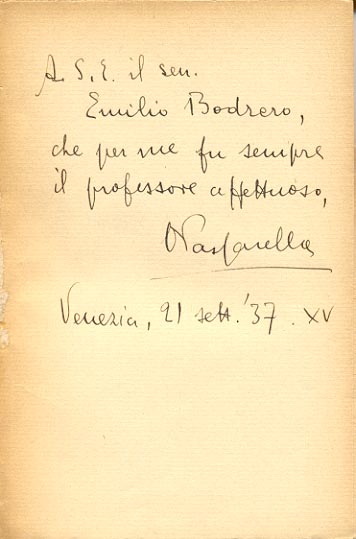 A S. E. il sen.
Emilio Bodrero,
che per me fu sempre
il professore affettuoso,
Venezia, 21 sett. '37. XV